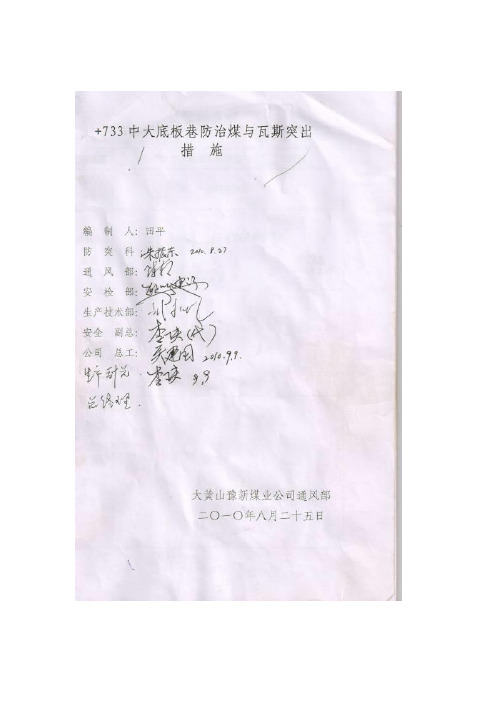 +733中大底板巷防治煤与瓦斯突出
措 施
编 制 人: 田平
防 突 科: 朱振东 2010.8.27
通 风 部:
安 检 部:
生产技术部:
安全 副总: 李玦(代)
公司 总工: 2010.9.9.
生产副总. 9.9
总经理.
大黄山豫新煤业公司通风部
二〇一〇年八月二十五日